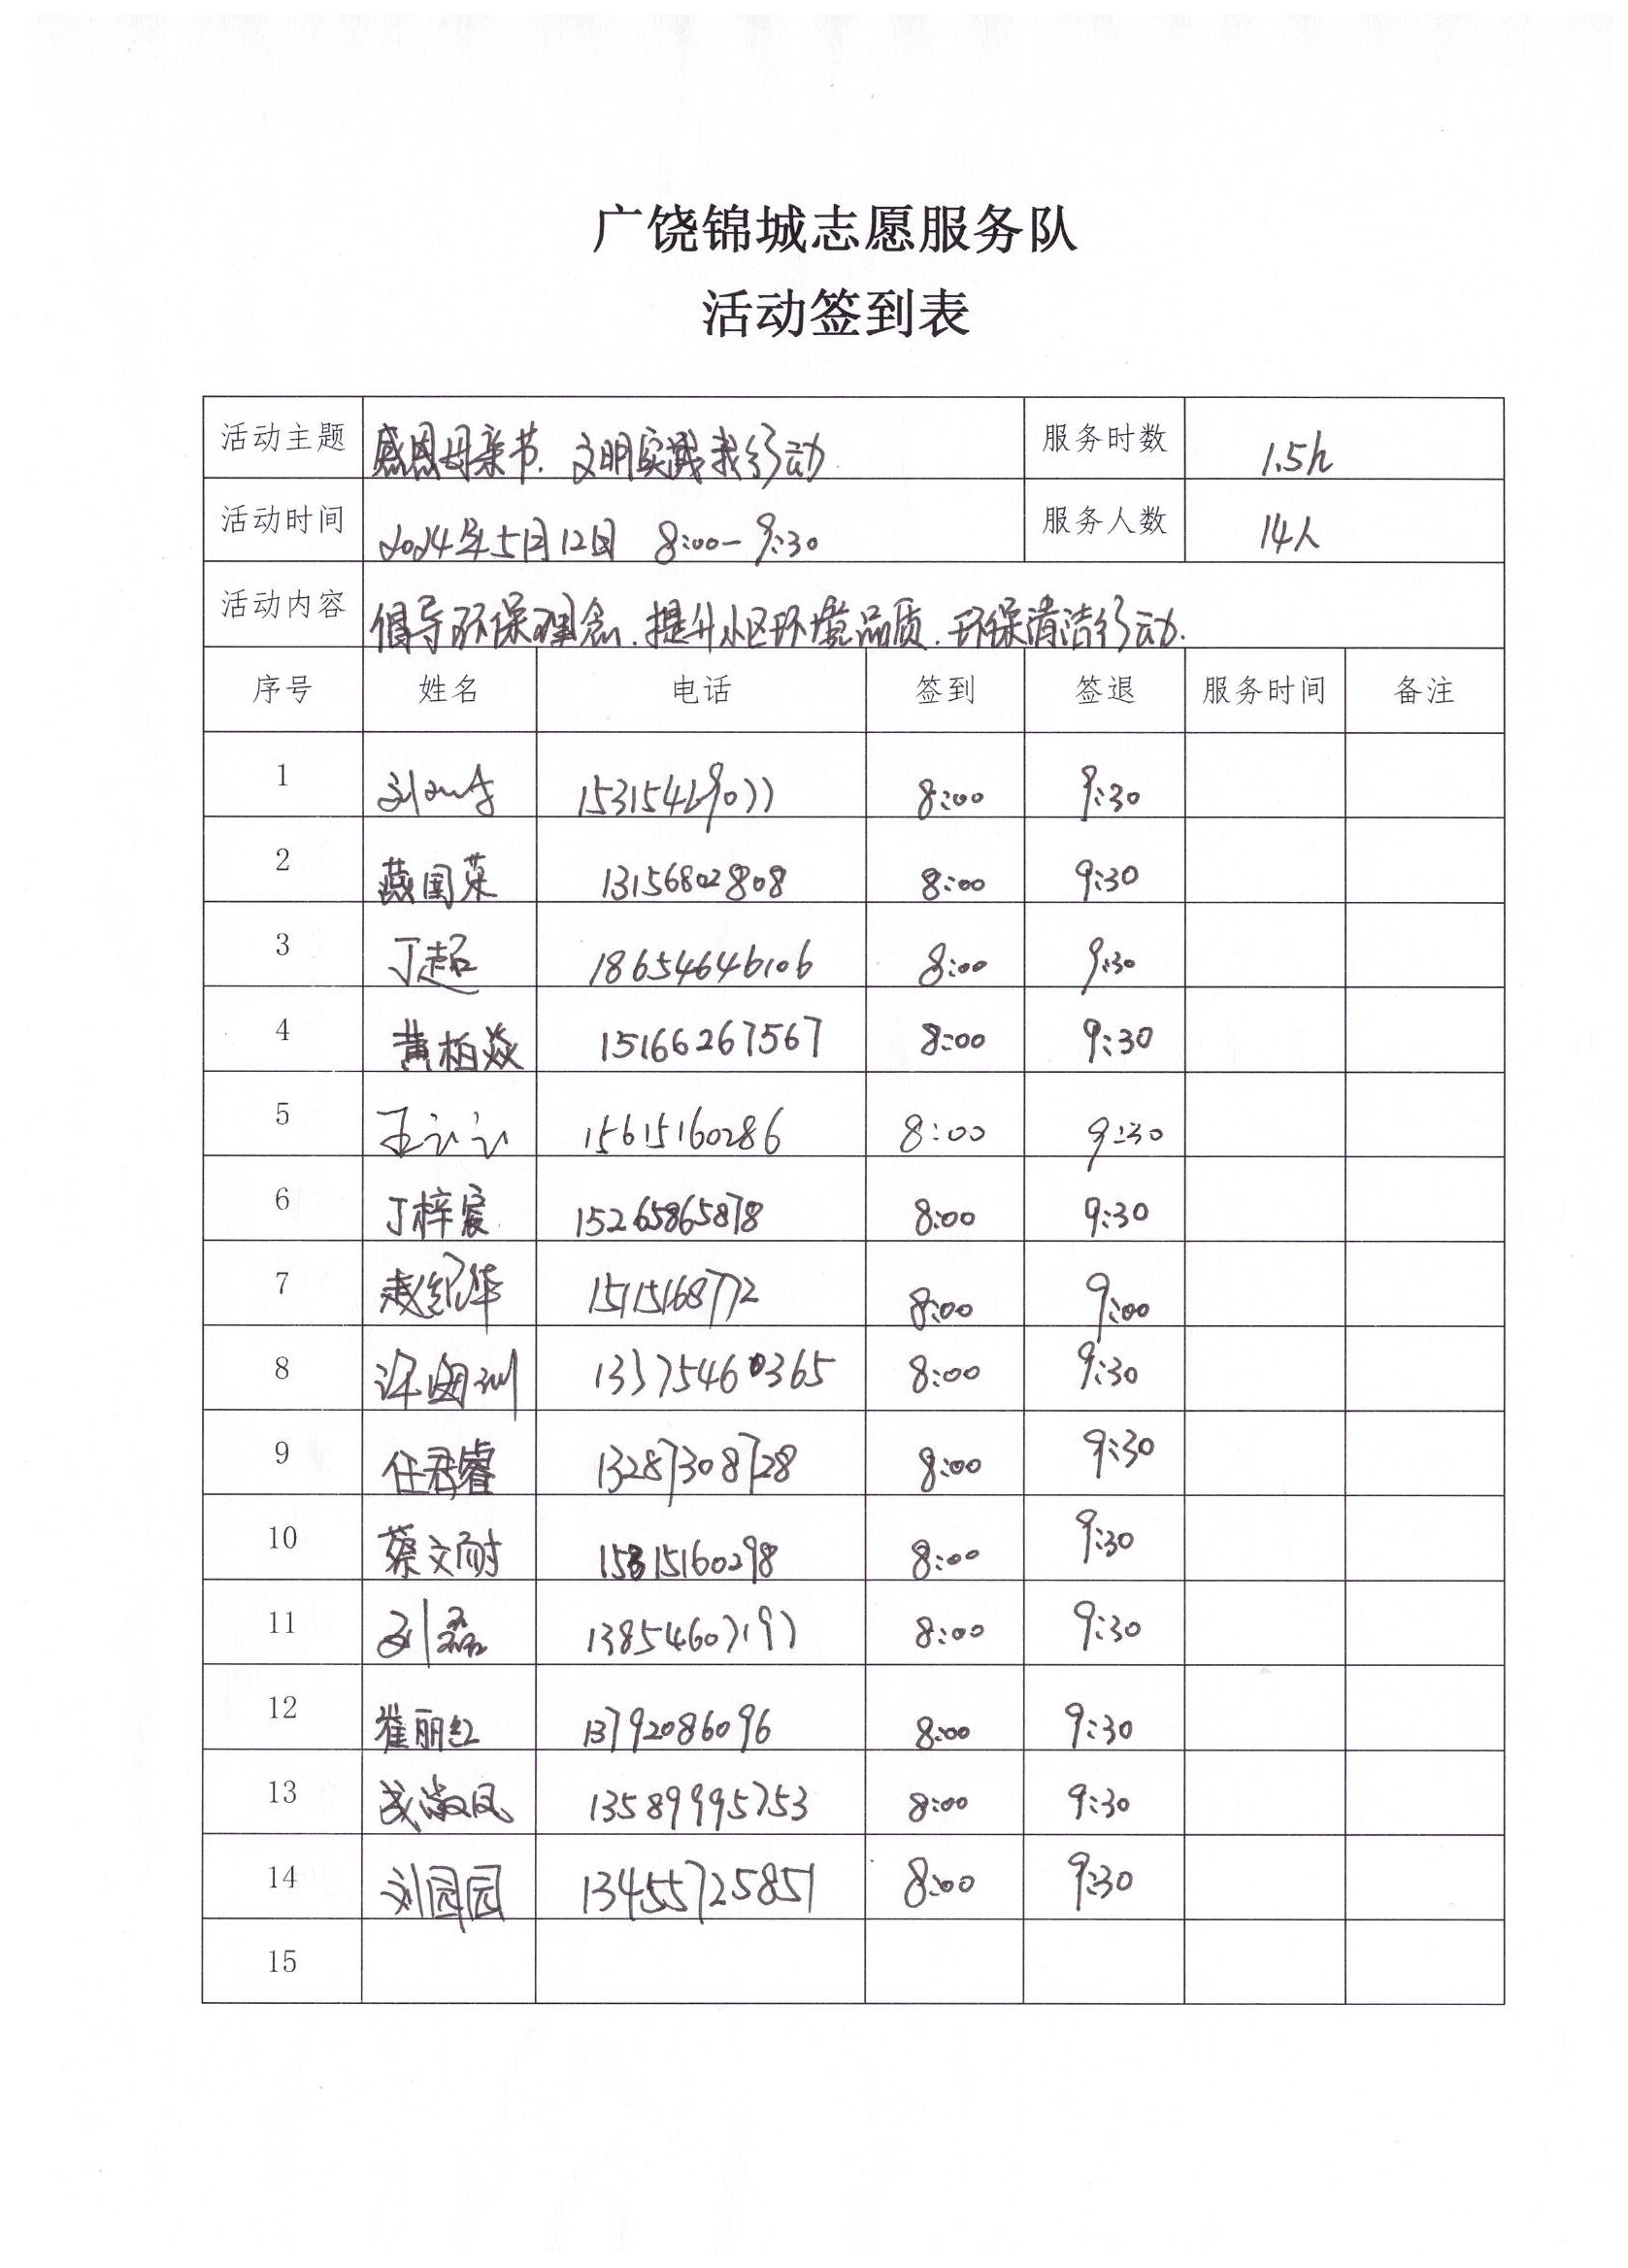 广饶锦城志愿服务队
活动签到表
活动主题 感恩母亲节.文明实践我行动 服务时数 1.5h
活动时间 2024年5月12日 8:00-9:30 服务人数 14人
活动内容 倡导环保理念.提升小区环境品质.环保清洁行动.
序号 姓名 电话 签到 签退 服务时间 备注
1 刘 8:00 9:30
2 燕国荣 13156802808 8:00 9:30
3 丁超 18654646106 8:00 9:30
4 黄柏焱 15166267567 8:00 9:30
5 王 15615160286 8:00 9:30
6 丁梓宸 15265865878 8:00 9:30
7 赵纪华 8:00 9:00
8 许 13375460365 8:00 9:30
9 任君睿 13287308728 8:00 9:30
10 蔡文耐 8:00 9:30
11 刘磊 13854607197 8:00 9:30
12 崔丽红 13792086096 8:00 9:30
13 成淑凤 13589995753 8:00 9:30
14 刘园园 13455725851 8:00 9:30
15